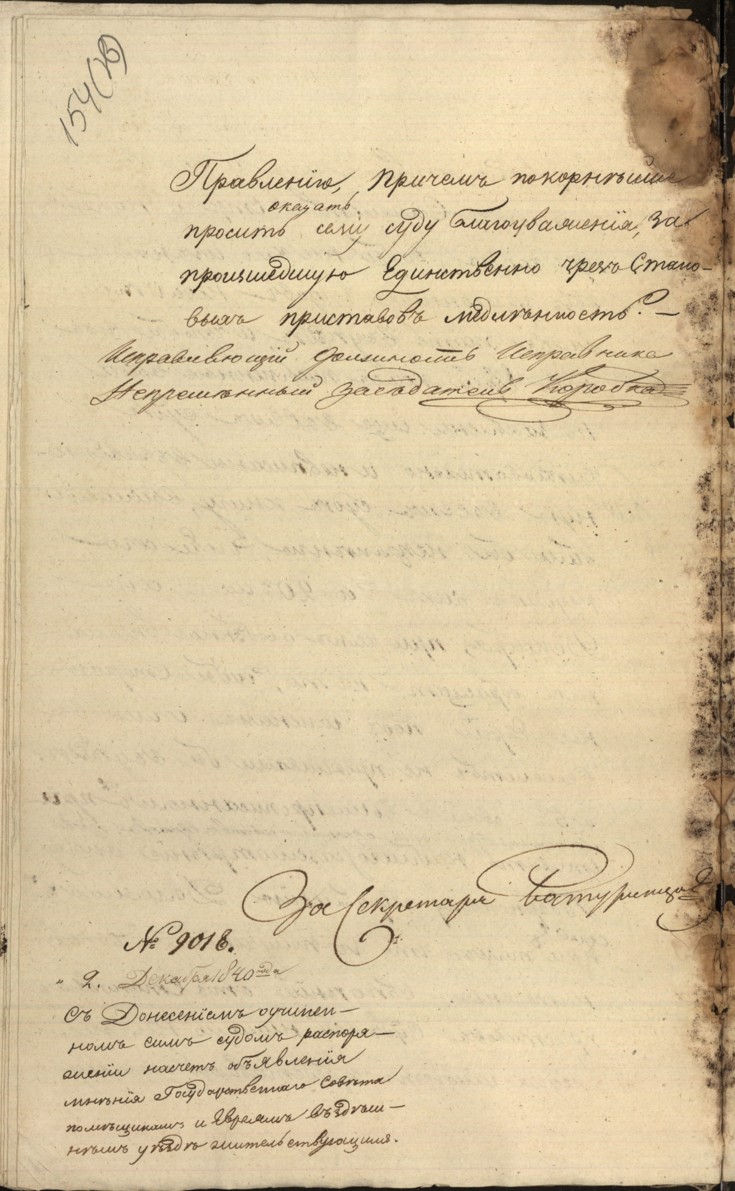 154(28)
Правленію, причемъ покорнѣйше
оказать
просить сему суду благоуваженія, за
проишедшую Единственно чрезъ Стано-
выхъ приставовъ мѣдлѣнность. —
Исправляющій должность Исправника
Непремѣнный засѣдатель Коробка
За Секретаря Батуринцов
№ 9018.
" 2. Декабря 1840 года
Съ Донесеніемъ оучинен-
номъ симъ судомъ распоря-
женіи насчетъ объявленія
мнѣнія Государственнаго Совѣта
помѣщикамъ и Евреямъ въ здѣш-
нѣмъ уѣздѣ жительствующимъ.